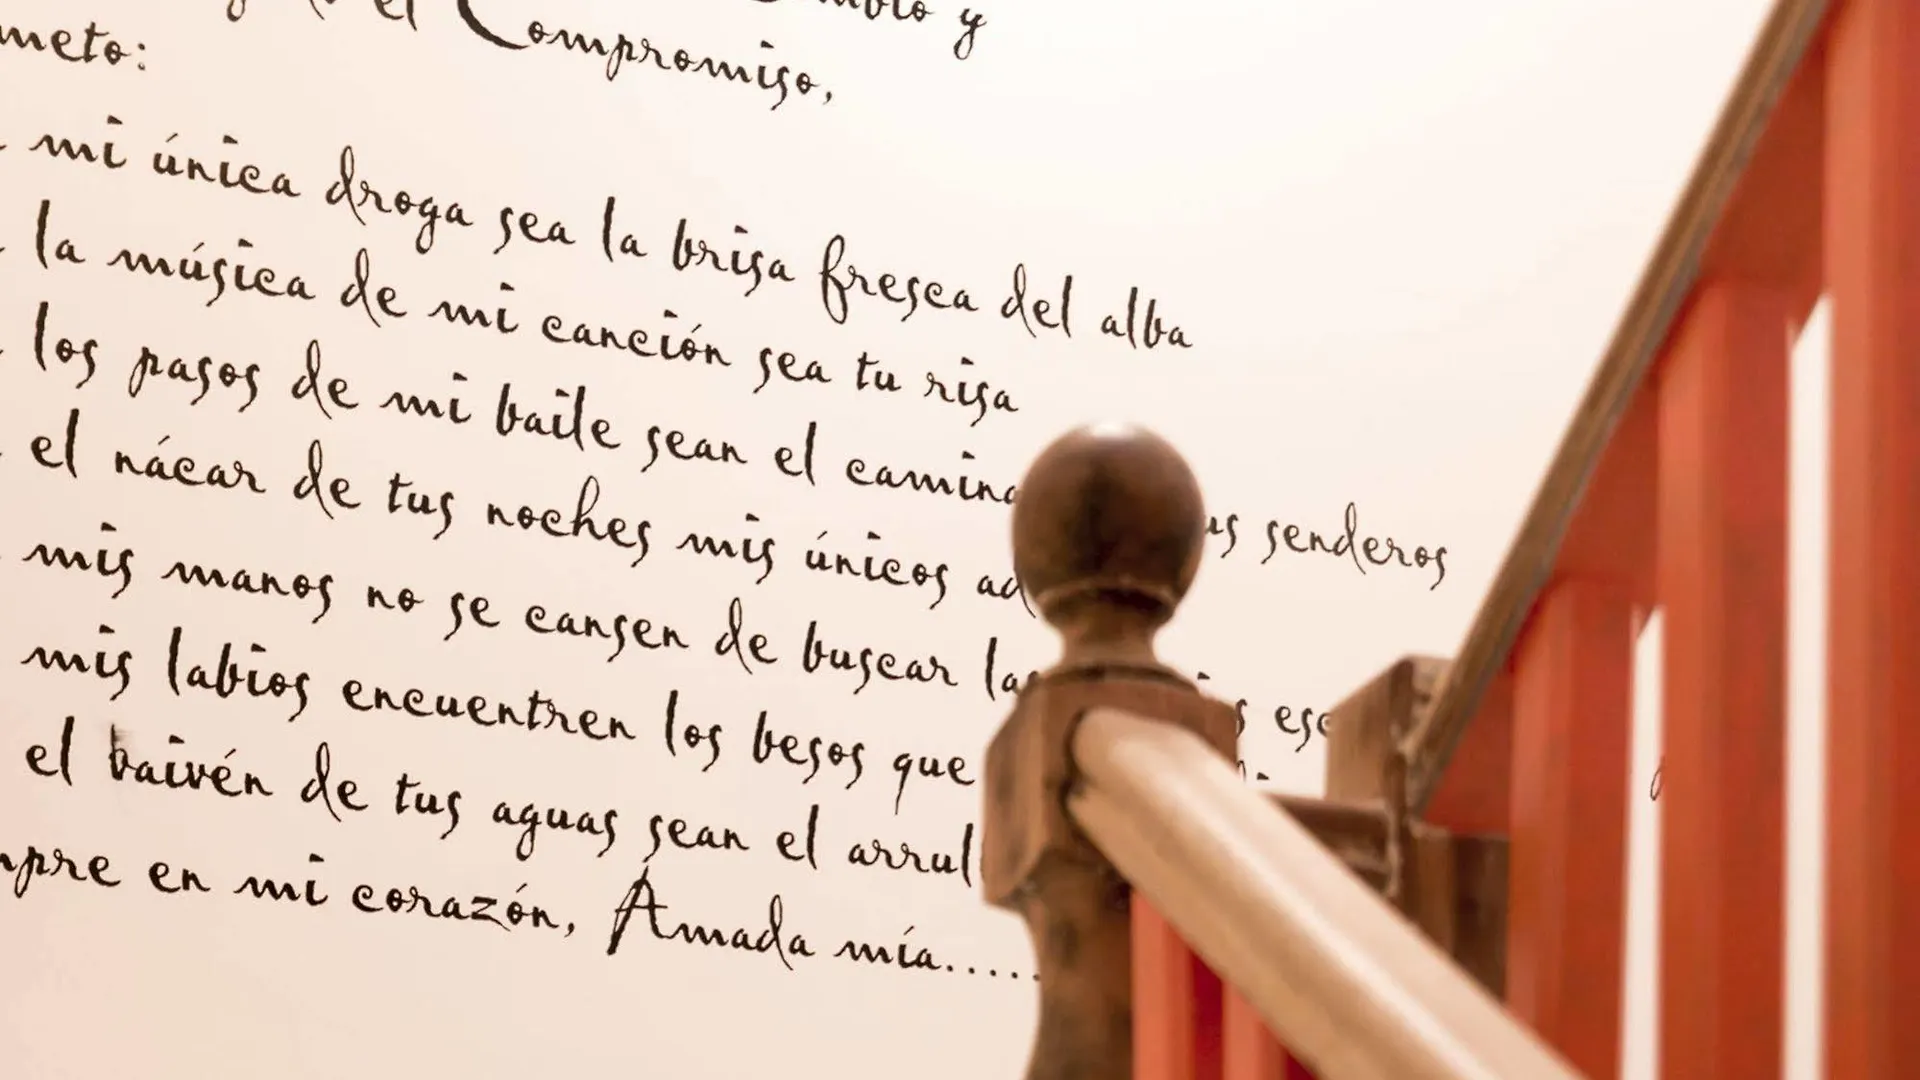 y
el Compromiso,
mi única droga sea la brisa fresca del alba
la música de mi canción sea tu risa
los pasos de mi baile sean el senderos
el nácar de tus noches mis únicos
mis manos no se cansen de buscar
mis labios encuentren los besos que
el vaivén de tus aguas sean el
en mi corazón, Amada mía.....